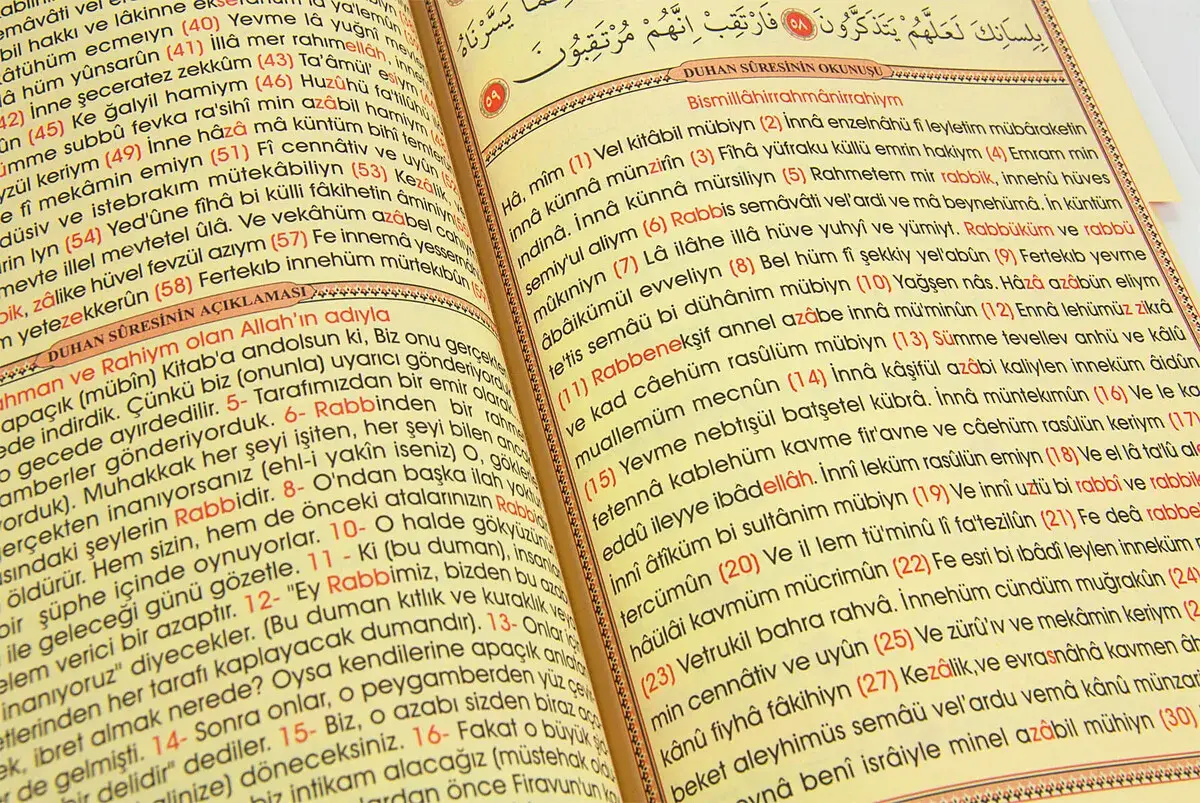 بىل hakkı ve lâkinne ekserahüm lâ ya'lemûn
ecmeıyn (40) Yevme lâ yuğni mevlen
lâ hüm yunsarûn (41) İllâ mer rahımellâh, innehû
(42) İnne şeceratez zekkûm (43) Ta'âmül' esiym
(45) Ke ğalyil hamiym (46) Huzûhü fa'tilûhü
ümme subbû fevka ra'sihî min azâbil hamiym
yzül keriym (49) İnne hâzâ mâ küntüm bihî temterûn
fî mekâmin emiyn (51) Fî cennâtiv ve uyûn (52)
düsiv ve istebrakım mütekâbiliyn (53) Kezâlik
ıyn (54) Yed'ûne fîhâ bi külli fâkihetin âminiyn
mevte illel mevtetel ûlâ. Ve vekâhüm azâbel cahıym
bik, zâlike hüvel fevzül azıym (57) Fe innemâ yessernâ
yetezekkerûn (58) Fertekıb innehüm mürtekıbûn
DUHAN SÛRESİNİN AÇIKLAMASI
ahman ve Rahiym olan Allah'ın adıyla
apaçık (mübîn) Kitab'a andolsun ki, Biz onu gerçekten
ede indirdik. Çünkü biz (onunla) uyarıcı gönderiyorduk
o gecede ayırdedilir. 5- Tarafımızdan bir emir olarak
amberler gönderiyorduk. 6- Rabbinden bir rahmet
yorduk). Muhakkak her şeyi işiten, her şeyi bilen ancak
gerçekten inanıyorsanız (ehl-i yakîn iseniz) O, gökler
asındaki şeylerin Rabbidir. 8- O'ndan başka ilah yoktur
öldürür. Hem sizin, hem de önceki atalarınızın Rabbidir
bir şüphe içinde oynuyorlar. 10- O halde gökyüzünün
ile geleceği günü gözetle. 11 - Ki (bu duman), insanları
elem verici bir azaptır. 12- "Ey Rabbimiz, bizden bu azabı
inanıyoruz" diyecekler. (Bu duman kıtlık ve kuraklık
etlerinden her tarafı kaplayacak dumandır). 13- Onlar için
ek, ibret almak nerede? Oysa kendilerine apaçık anlatan
de gelmişti. 14- Sonra onlar, o peygamberden yüz çevir
bir delidir" dediler. 15- Biz, o azabı sizden biraz
halinize) döneceksiniz. 16- Fakat o büyük
biz intikam alacağız (müstenak
lardan önce Firavun'un
فَاِنَّمَا يَسَّرْنَاهُ
بِلِسَانِكَ لَعَلَّهُمْ يَتَذَكَّرُونَ ٥٨ فَارْتَقِبْ اِنَّهُمْ مُرْتَقِبُونَ ٥٩
DUHAN SÛRESİNİN OKUNUŞU
Bismillâhirrahmânirrahiym
Hâ, mîm (1) Vel kitâbil mübiyn (2) İnnâ enzelnâhü fî leyletim mübâraketin
innâ künnâ münzirîn (3) Fîhâ yüfraku küllü emrin hakiym (4) Emram min
ındinâ. İnnâ künnâ mürsiliyn (5) Rahmetem mir rabbik, innehû hüves
semiy'ul aliym (6) Rabbis semâvâti vel'ardi ve mâ beynehümâ. İn küntüm
mûkıniyn (7) Lâ ilâhe illâ hüve yuhyî ve yümiyt. Rabbüküm ve rabbü
âbâikümül evveliyn (8) Bel hüm fî şekkiy yel'abûn (9) Fertekıb yevme
te'tis semâü bi dühânim mübiyn (10) Yağşen nâs. Hâzâ azâbün eliym
(11) Rabbenekşif annel azâbe innâ mü'minûn (12) Ennâ lehümüz zikrâ
ve kad câehüm rasûlüm mübiyn (13) Sümme tevellev anhü ve kâlû
muallemüm mecnûn (14) İnnâ kâşifül azâbi kaliylen inneküm âidûn
(15) Yevme nebtışül batşetel kübrâ. İnnâ müntekımûn (16) Ve le kad
fetennâ kablehüm kavme fir'avne ve câehüm rasûlün keriym (17)
eddû ileyye ibâdellâh. İnnî leküm rasûlün emiyn (18) Ve el lâ ta'lû
innî âtîküm bi sultânim mübiyn (19) Ve innî uztü bi rabbî ve rabbiküm
tercümûn (20) Ve il lem tü'minû lî fa'tezilûn (21) Fe deâ rabbehû
hâülâi kavmüm mücrimûn (22) Fe esri bi ıbâdî leylen inneküm
(23) Vetrukil bahra rahvâ. İnnehüm cündüm muğrakûn (24)
min cennâtiv ve uyûn (25) Ve zürû'ıv ve mekâmin keriym
kânû fiyhâ fâkihiyn (27) Kezâlik, ve evrasnâhâ kavmen
beket aleyhimüs semâü vel'ardu vemâ kânû münzarîn
eynâ benî isrâiyle minel azâbil mühiyn (30)